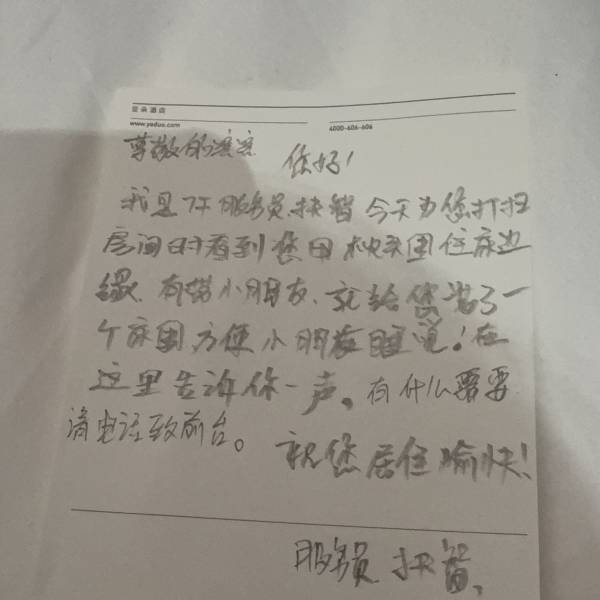 亚朵酒店
www.yaduo.com
4000-606-606
尊敬的宾客 您好!
我是7F服务员扶智 今天为您打扫
房间时看到您用枕头围住床边
缘.有带小朋友、就给您装了一
个床围方便小朋友睡觉!在
这里告诉你一声。有什么需要
请电话致前台。 祝您居住愉快!
服务员 扶智、